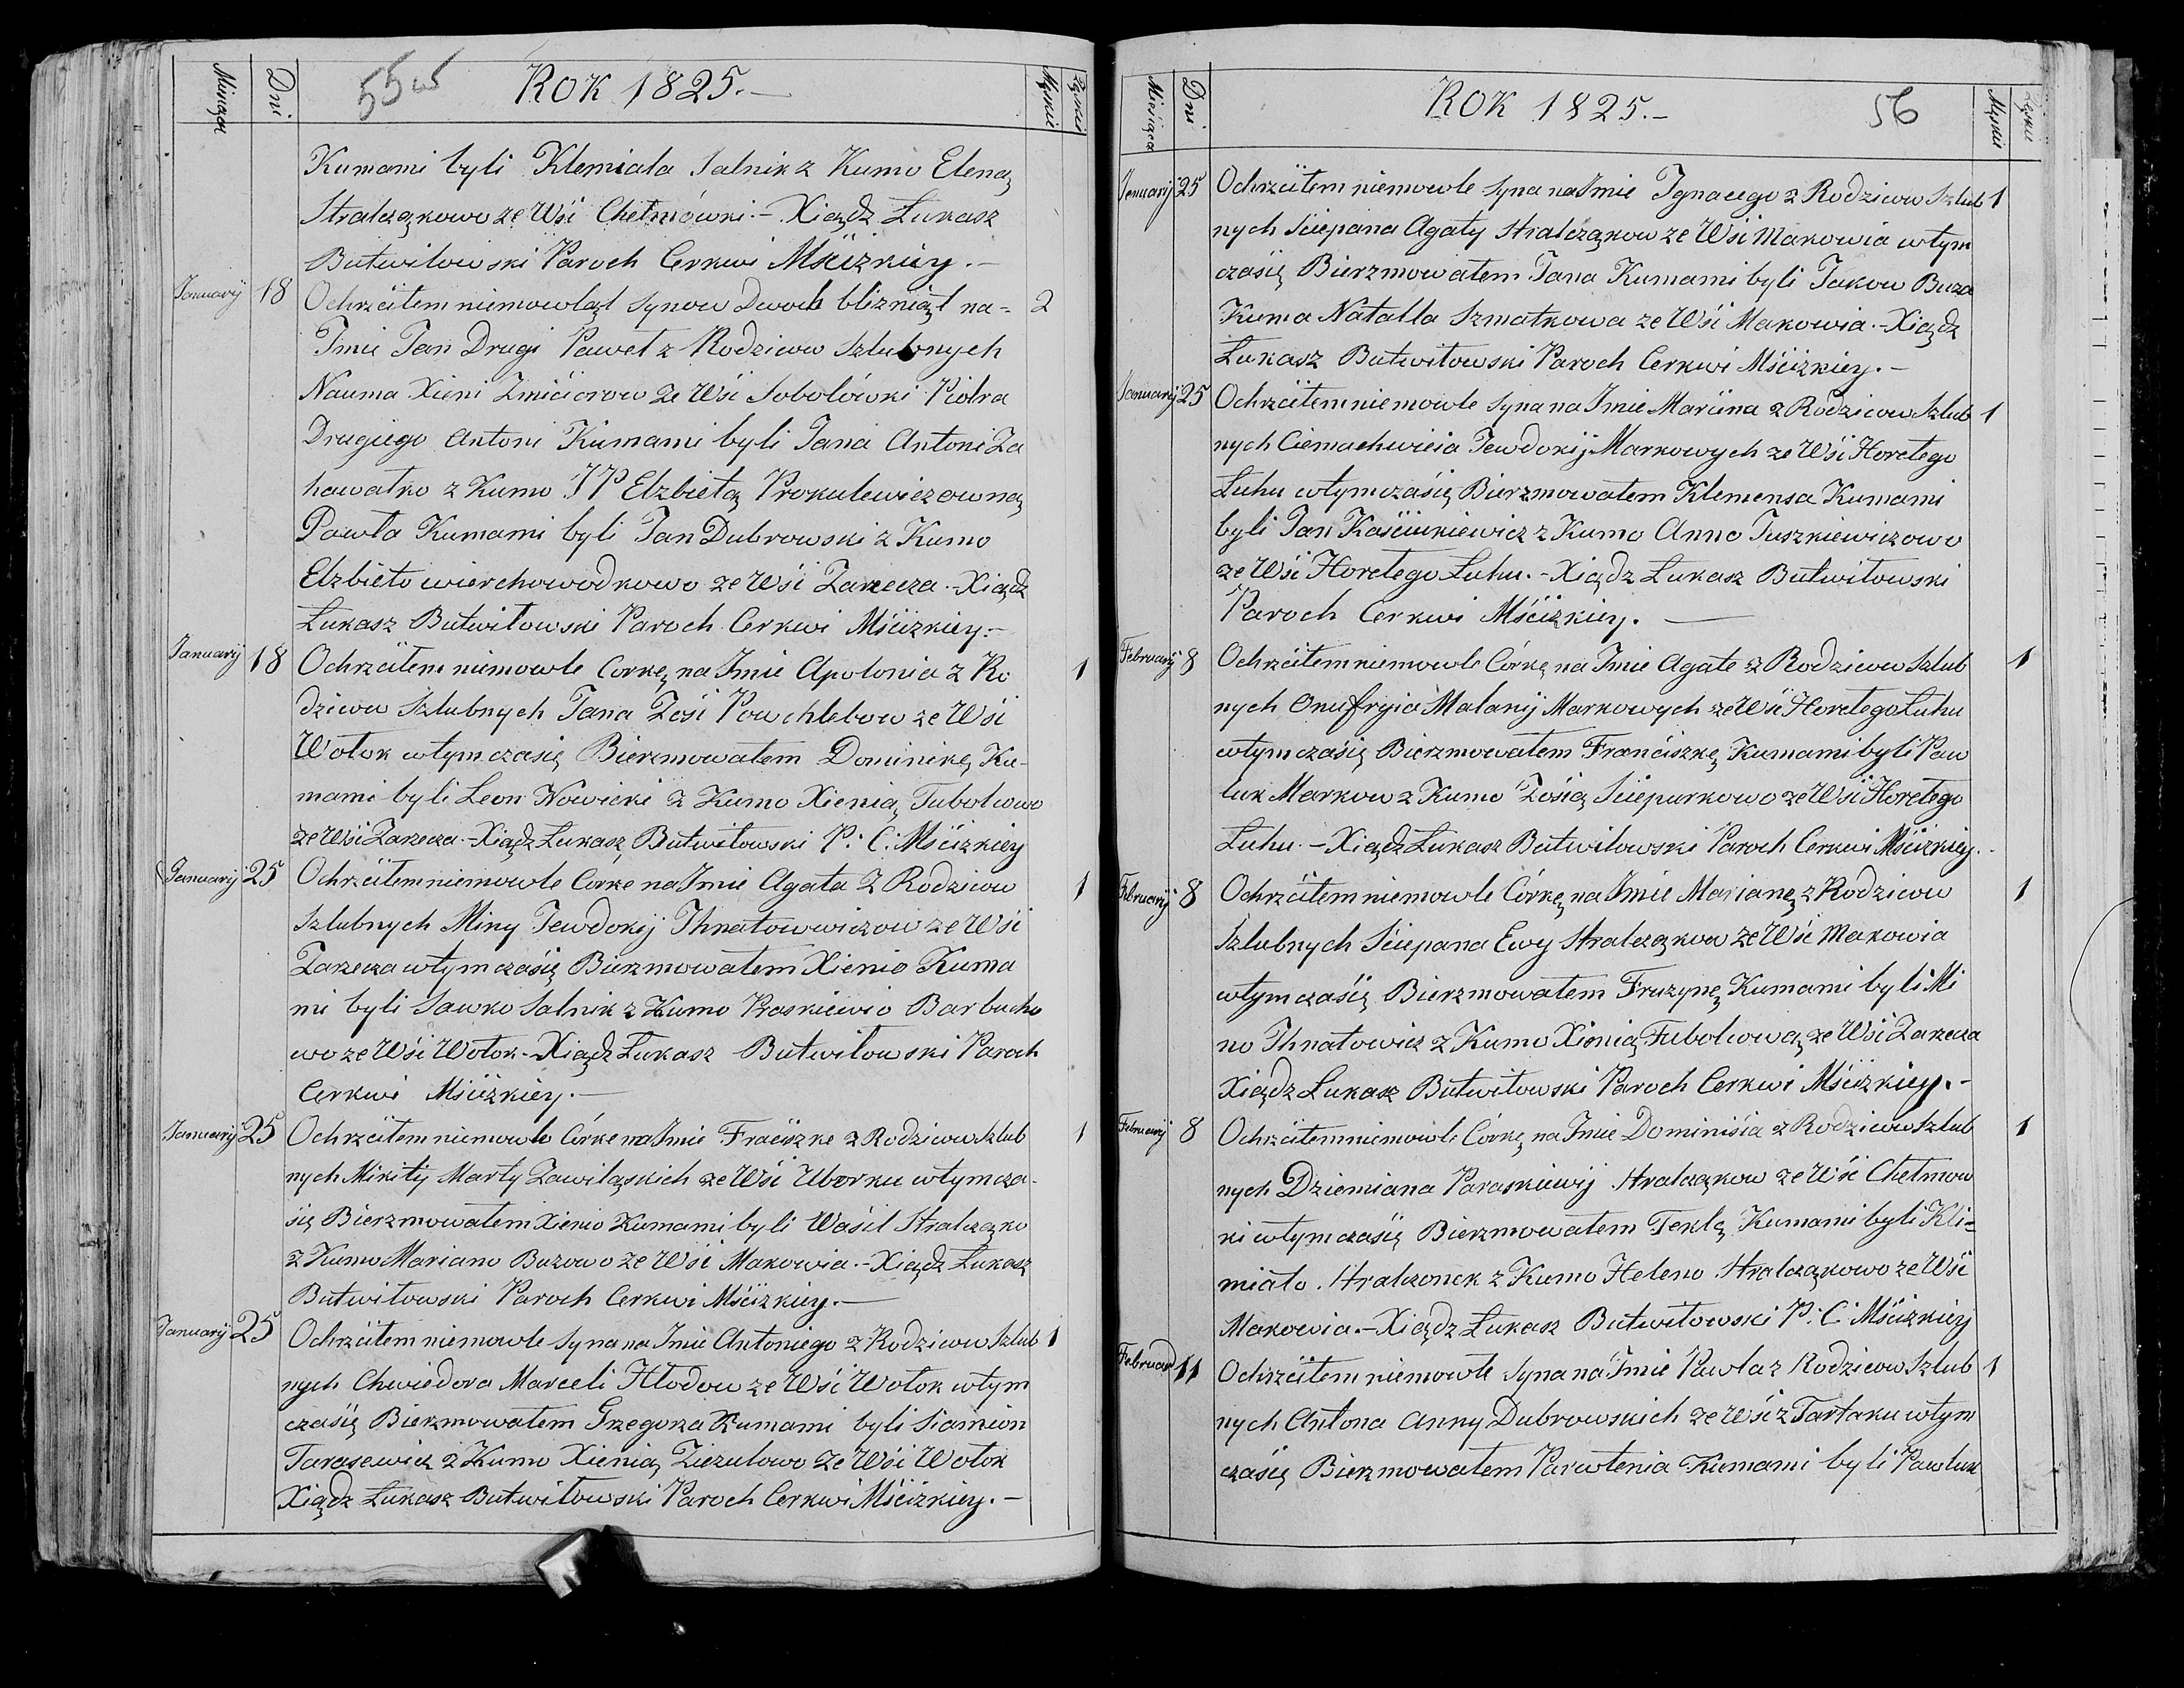 Miesiąca Dni 55 ROK 1825.— Męskie Żęskie
Kumami byli Klemiata Salnik z Kumo Eleną
Stralcząkowo ze Wśi Chełmówki.- Xiądz Łukasz
Butwiłowski Paroch Cerkwi Mściżkiey.—
January 18 Ochrzćiłem niemowląt synow Dwoch blizniąt na= 2
Jmie Jan Drugi Paweł z Rodzicow Szlubnych
Nauma Xieni Zmićiorow ze Wśi Sobolówki Piotra
Drugiego Antoni Kumami byli Jana Antoni Za
hawatko z Kumo JP Elzbietą Prokulewiczowną
Pawła Kumami byli Jan Dubrowski z Kumo
Elzbieto wierchowodkowo ze Wśi Zarzecza.-Xiądz
Łukasz Butwiłowski Paroch Cerkwi Mściżkiey.-
January 18 Ochrzćiłem niemowle Corkę na Jmie Apolonia z Ro 1
dzicow Szlubnych Jana Zośi Powchlebow ze Wśi
Wołok wtym czasię Bierzmowałem Dominikę Ku-
mami byli Leon Nowicki z Kumo Xienią Tubolcowo
ze Wśi Zarzecza.-Xiądz Łukasz Butwiłowski P: C: Mściżkiey
January 25 Ochrzćiłem niemowle Corke na Jmie Agata z Rodzicow 1
Szlubnych Miny Jewdokij Jhnatowwiczow ze Wśi
Zarzecza wtym czaśię Bierzmowałem Xienio Kuma
mi byli Sawko Salnik z Kumo Praskiewio Barbucho
wo ze Wśi Wołok.-Xiądz Łukasz Butwiłowski Paroch
Cerkwi Mściżkiey.—
January 25 Ochrzćiłem niemowle Córke na Jmie Fraćiszke z Rodzicow Szlub 1
nych Mikity Marty Zawiląskich ze Wśi Uborku wtym cza-
śię Bierzmowałem Xienio Kumami byli Waśil Stralcząko
z Kumo Mariano Buzowo ze Wśi Makowia.-Xiądz Łukasz
Butwiłowski Paroch Cerkwi Mściżkiey.—
January 25 Ochrzćiłem niemowle syna na Jmie Antoniego z Rodzicow Szlub 1
nych Chwiedora Marceli Hłodow ze Wśi Wołok wtym
czaśię Bierzmowałem Grzegorza Kumami byli Siamion
Tarasewicz z Kumo Xienią Ziezulowo ze Wśi Wołok
Xiądz Łukasz Butwiłowski Paroch Cerkwi Mściżkiey.—
Miesiąca Dni ROK 1825.— 56 Męskie Żęskie
January 25 Ochrzćiłem niemowle syna na Jmie Jgnacego z Rodzicow Szlub 1
nych Śćiepana Agaty Stralcząkow ze Wśi Makowia wtym
czaśię Bierzmowałem Jana Kumami byli Jakow Buza
Kuma Natalla Szmatkowa ze Wśi Makowia.-Xiądz
Łukasz Butwiłowski Paroch Cerkwi Mściżkiey.—
January 25 Ochrzćiłem niemowle syna na Jmie Marćina z Rodzicow Szlub 1
nych Ciemachwieia Jewdokij Markowych ze Wśi Horełego
Łuhu wtym czaśię Bierzmowałem Klemensa Kumami
byli Jan Kaśćiukiewicz z Kumo Anno Juszkiewiczowo
ze Wśi Horełego Łuhu.-Xiądz Łukasz Butwiłowski
Paroch Cerkwi Mściżkiey.—
February 8 Ochrzćiłem niemowle Córkę na Jmie Agate z Rodzicow Szlub 1
nych Onufryia Malanij Markowych ze Wśi Horełego Łuhu
wtym czaśię Bierzmowałem Franćiszkę Kumami byli Paw
luk Markow z Kumo Zośią Śćiepurkowo ze Wśi Horełego
Łuhu.-Xiądz Łukasz Butwiłowski Paroch Cerkwi Mściżkiey.
February 8 Ochrzćiłem niemowle Córkę na Jmie Marianę z Rodzicow 1
Szlubnych Śćiepana Ewy Stralcząkow ze Wśi Makowia
wtym czaśię Bierzmowałem Fruzynę Kumami byli Mi
no Jhnatowicz z Kumo Xienią Tubolcową ze Wśi Zarzecza
Xiądz Łukasz Butwiłowski Paroch Cerkwi Mściżkiey.—
February 8 Ochrzćiłem niemowle Córkę na Jmie Dominiśia z Rodzicow Szlub 1
nych Dziemiana Paraskiewij Stralcząkow ze Wśi Chełmow
ki wtym czaśię Bierzmowałem Teklę Kumami byli Kli=
miato Stralczonek z Kumo Heleno Stralcząkowo ze Wśi
Makowia.-Xiądz Łukasz Butwiłowski P: C: Mściżkiey
Februar 11 Ochrzćiłem niemowle syna na Jmie Pawła z Rodzicow Szlub 1
nych Antona Anny Dubrowskich ze Wśi z Tartaku wtym
czaśię Bierzmowałem Parwłenia Kumami byli Pawluk